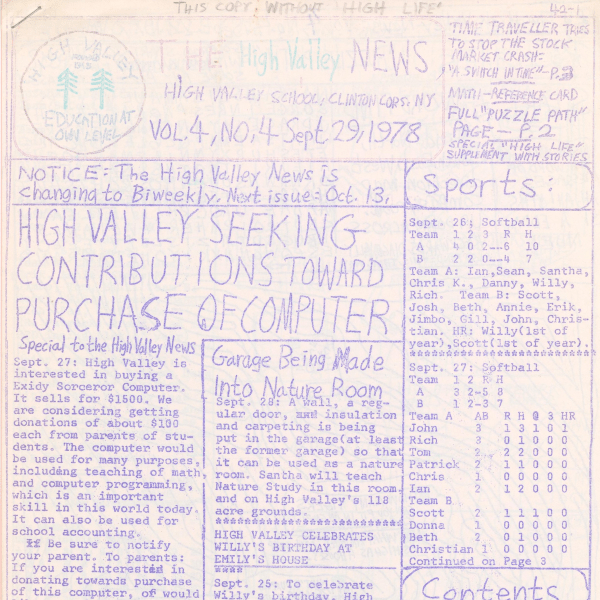 THIS COPY, WITHOUT "HIGH LIFE"
42-1
HIGH VALLEY
EDUCATION AT
OWN LEVEL
THE High Valley NEWS
HIGH VALLEY SCHOOL, CLINTON CORS. NY
VOL.4, NO.4 Sept. 29, 1978
TIME TRAVELLER TRIES
TO STOP THE STOCK
MARKET CRASH:
"A SWITCH IN TIME"-P.3
MATH-REFERENCE CARD
FULL "PUZZLE PATH"
PAGE-P.2
SPECIAL "HIGH LIFE"
SUPPLEMENT WITH STORIES
NOTICE: The High Valley News is
changing to Biweekly. Next issue: Oct. 13,
HIGH VALLEY SEEKING
CONTRIBUTIONS TOWARD
PURCHASE OF COMPUTER
Special to the High Valley News
Sept. 27: High Valley is
interested in buying a
Exidy Sorceror Computer.
It sells for $1500. We
are considering getting
donations of about $100
each from parents of stu-
dents. The computer would
be used for many purposes,
including teaching of math
and computer programming,
which is an important
skill in this world today.
It can also be used for
school accounting.
Be sure to notify
your parent. To parents:
If you are interested in
donating towards purchase
of this computer, of would
Garage Being Made
Into Nature Room
Sept. 28: A wall, a reg-
ular door, insulation
and carpeting is being
put in the garage(at least
the former garage) so that
it can be used as a nature
room. Santha will teach
Nature Study in this room
and on High Valley's 118
acre grounds.
**************************
HIGH VALLEY CELEBRATES
WILLY'S BIRTHDAY AT
EMILY'S HOUSE
****
Sept. 25: To celebrate
Willy's birthday, High
Sports:
Sept. 26: Softball
Team 1 2 3 R H
A 4 0 2--6 10
B 2 2 0--4 7
Team A: Ian,Sean, Santha,
Chris K., Danny, Willy,
Rich. Team B: Scott,
Josh, Beth, Annie, Erik,
Jimbo, Gill, John, Chris-
tian. HR: Willy(1st of
year),Scott(1st of year).
*************************
Sept. 27: Softball
Team 1 2 R H
A 3 2-5 8
B 1 2-3 7
Team A AB R H 2 3 HR
John 3 1 3 1 0 1
Rich 3 0 1 0 0 0
Tom 2 2 2 0 0 0
Patrick 2 1 1 0 0 0
Chris 1 0 0 0 0 0
Ian 2 1 2 0 0 0
Team B
Scott 2 1 1 1 0 0
Donna 1 0 0 0 0 0
Beth 2 0 1 0 0 0
Christian 1 0 0 0 0 0
Continued on Page 3
Contents